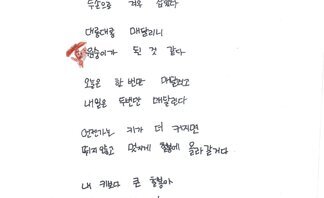 두손으로 겨우 잡았다
대롱대롱 매달리니
원숭이가 된 것 같다
오늘은 한 번만 매달리고
내일은 두번만 매달린다
언젠가는 키가 더 커지면
뛰지않고 멋지게 철봉에 올라갈거다
내 키보다 큰 철봉아